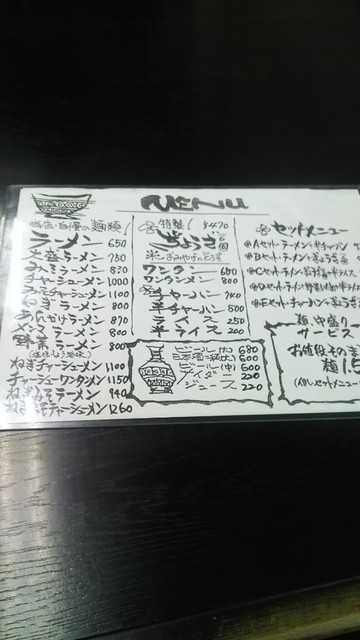 MENU
当店自慢の麺類!
ラーメン 650
大盛ラーメン 750
みそラーメン 830
チャーシューメン 1000
みそチャーシューメン 1100
ねぎラーメン 800
あんかけラーメン 870
メンマラーメン 800
野菜ラーメン 800
ねぎチャーシューメン 1100
チャーシューワンタンメン 1150
ねぎみそラーメン 940
ねぎみそチャーシューメン 1260
特製! ¥470
ぎょうざ 6個
おみやげ
ワンタン 600
ワンタンメン 800
チャーハン 740
半チャーハン 500
ライス 250
半ライス 200
ビール(大) 680
日本酒 600
ビール(中) 600
サイダー 220
ジュース 220
セットメニュー
Aセット・ラーメン+半チャーハン
Bセット・ラーメン
Cセット・ラーメン
Dセット・ラーメン
Eセット・チャーハン
麺中盛り
サービス
お値段その
麺1.5